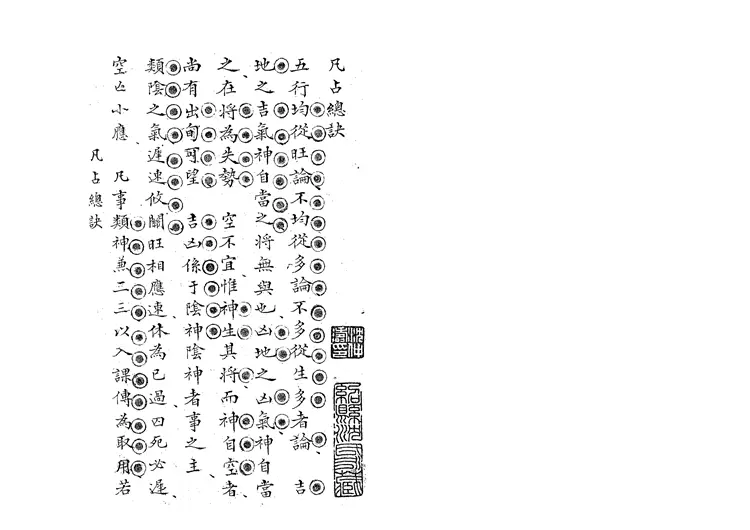 凡占總訣
五行均從旺論不均從多論不多從生多者論　吉
地之吉氣神自當之將無與也凶地之凶氣神自當
之在將為失勢　空不宜惟神生其將而神自空者
尚有出旬可望　吉凶係于陰神陰神者事之主
類陰之氣遲速攸關旺相應速休為已過囚死必遲
空亡小應　凡事類神兼二三以入課傳為取用若
凡占總訣